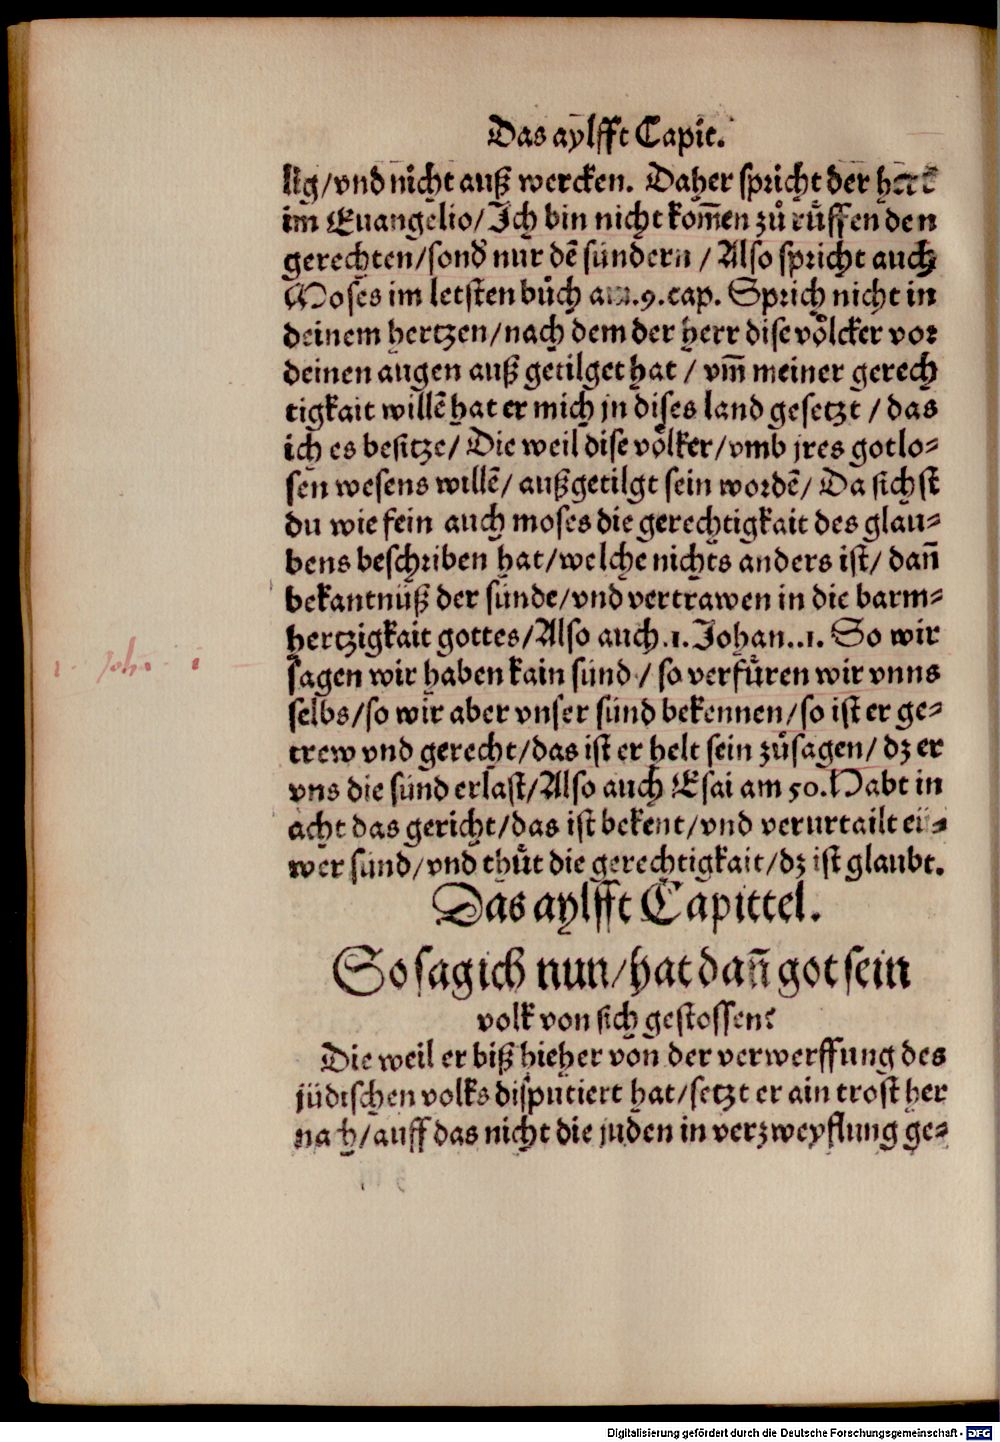 Das aylfft Capit.
lig/vnd nicht auß wercken. Daher spricht der herr
im Euangelio/Ich bin nicht kom̄en zů růffen den
gerechten/sond̄ nur dē sündern / Also spricht auch
Moses im letsten bůch am.9.cap. Sprich nicht in
deinem hertzen/nach dem der herr dise völcker vor
deinen augen auß getilget hat / vm̄ meiner gerech
tigkait willē hat er mich jn dises land gesetzt / das
ich es besitze/ Die weil dise völker/vmb jres gotlo-
sen wesens willē/ außgetilgt sein wordē/ Da sichst
du wie fein auch moses die gerechtigkait des glau-
bens beschriben hat/welche nichts anders ist/ dan̄
bekantnuß der sünde/vnd vertrawen in die barm-
hertzigkait gottes/Also auch.1.Johan..1. So wir
1. Joh. 1
sagen wir haben kain sünd / so verfüren wir vnns
selbs/so wir aber vnser sünd bekennen/so ist er ge-
trew vnd gerecht/das ist er helt sein zůsagen/ dz er
vns die sünd erlast/Also auch Esai am 50.Habt in
acht das gericht/das ist bekent/vnd verurtailt eü-
wer sünd/vnd thůt die gerechtigkait/dz ist glaubt.
Das aylfft Capittel.
So sag ich nun/hat dan̄ got sein
volk von sich gestossen?
Die weil er biß hieher von der verwerffung des
jüdischen volks disputiert hat/setzt er ain trost her
nach/auff das nicht die juden in verzweyflung ge-
Digitalisierung gefördert durch die Deutsche Forschungsgemeinschaft - DFG